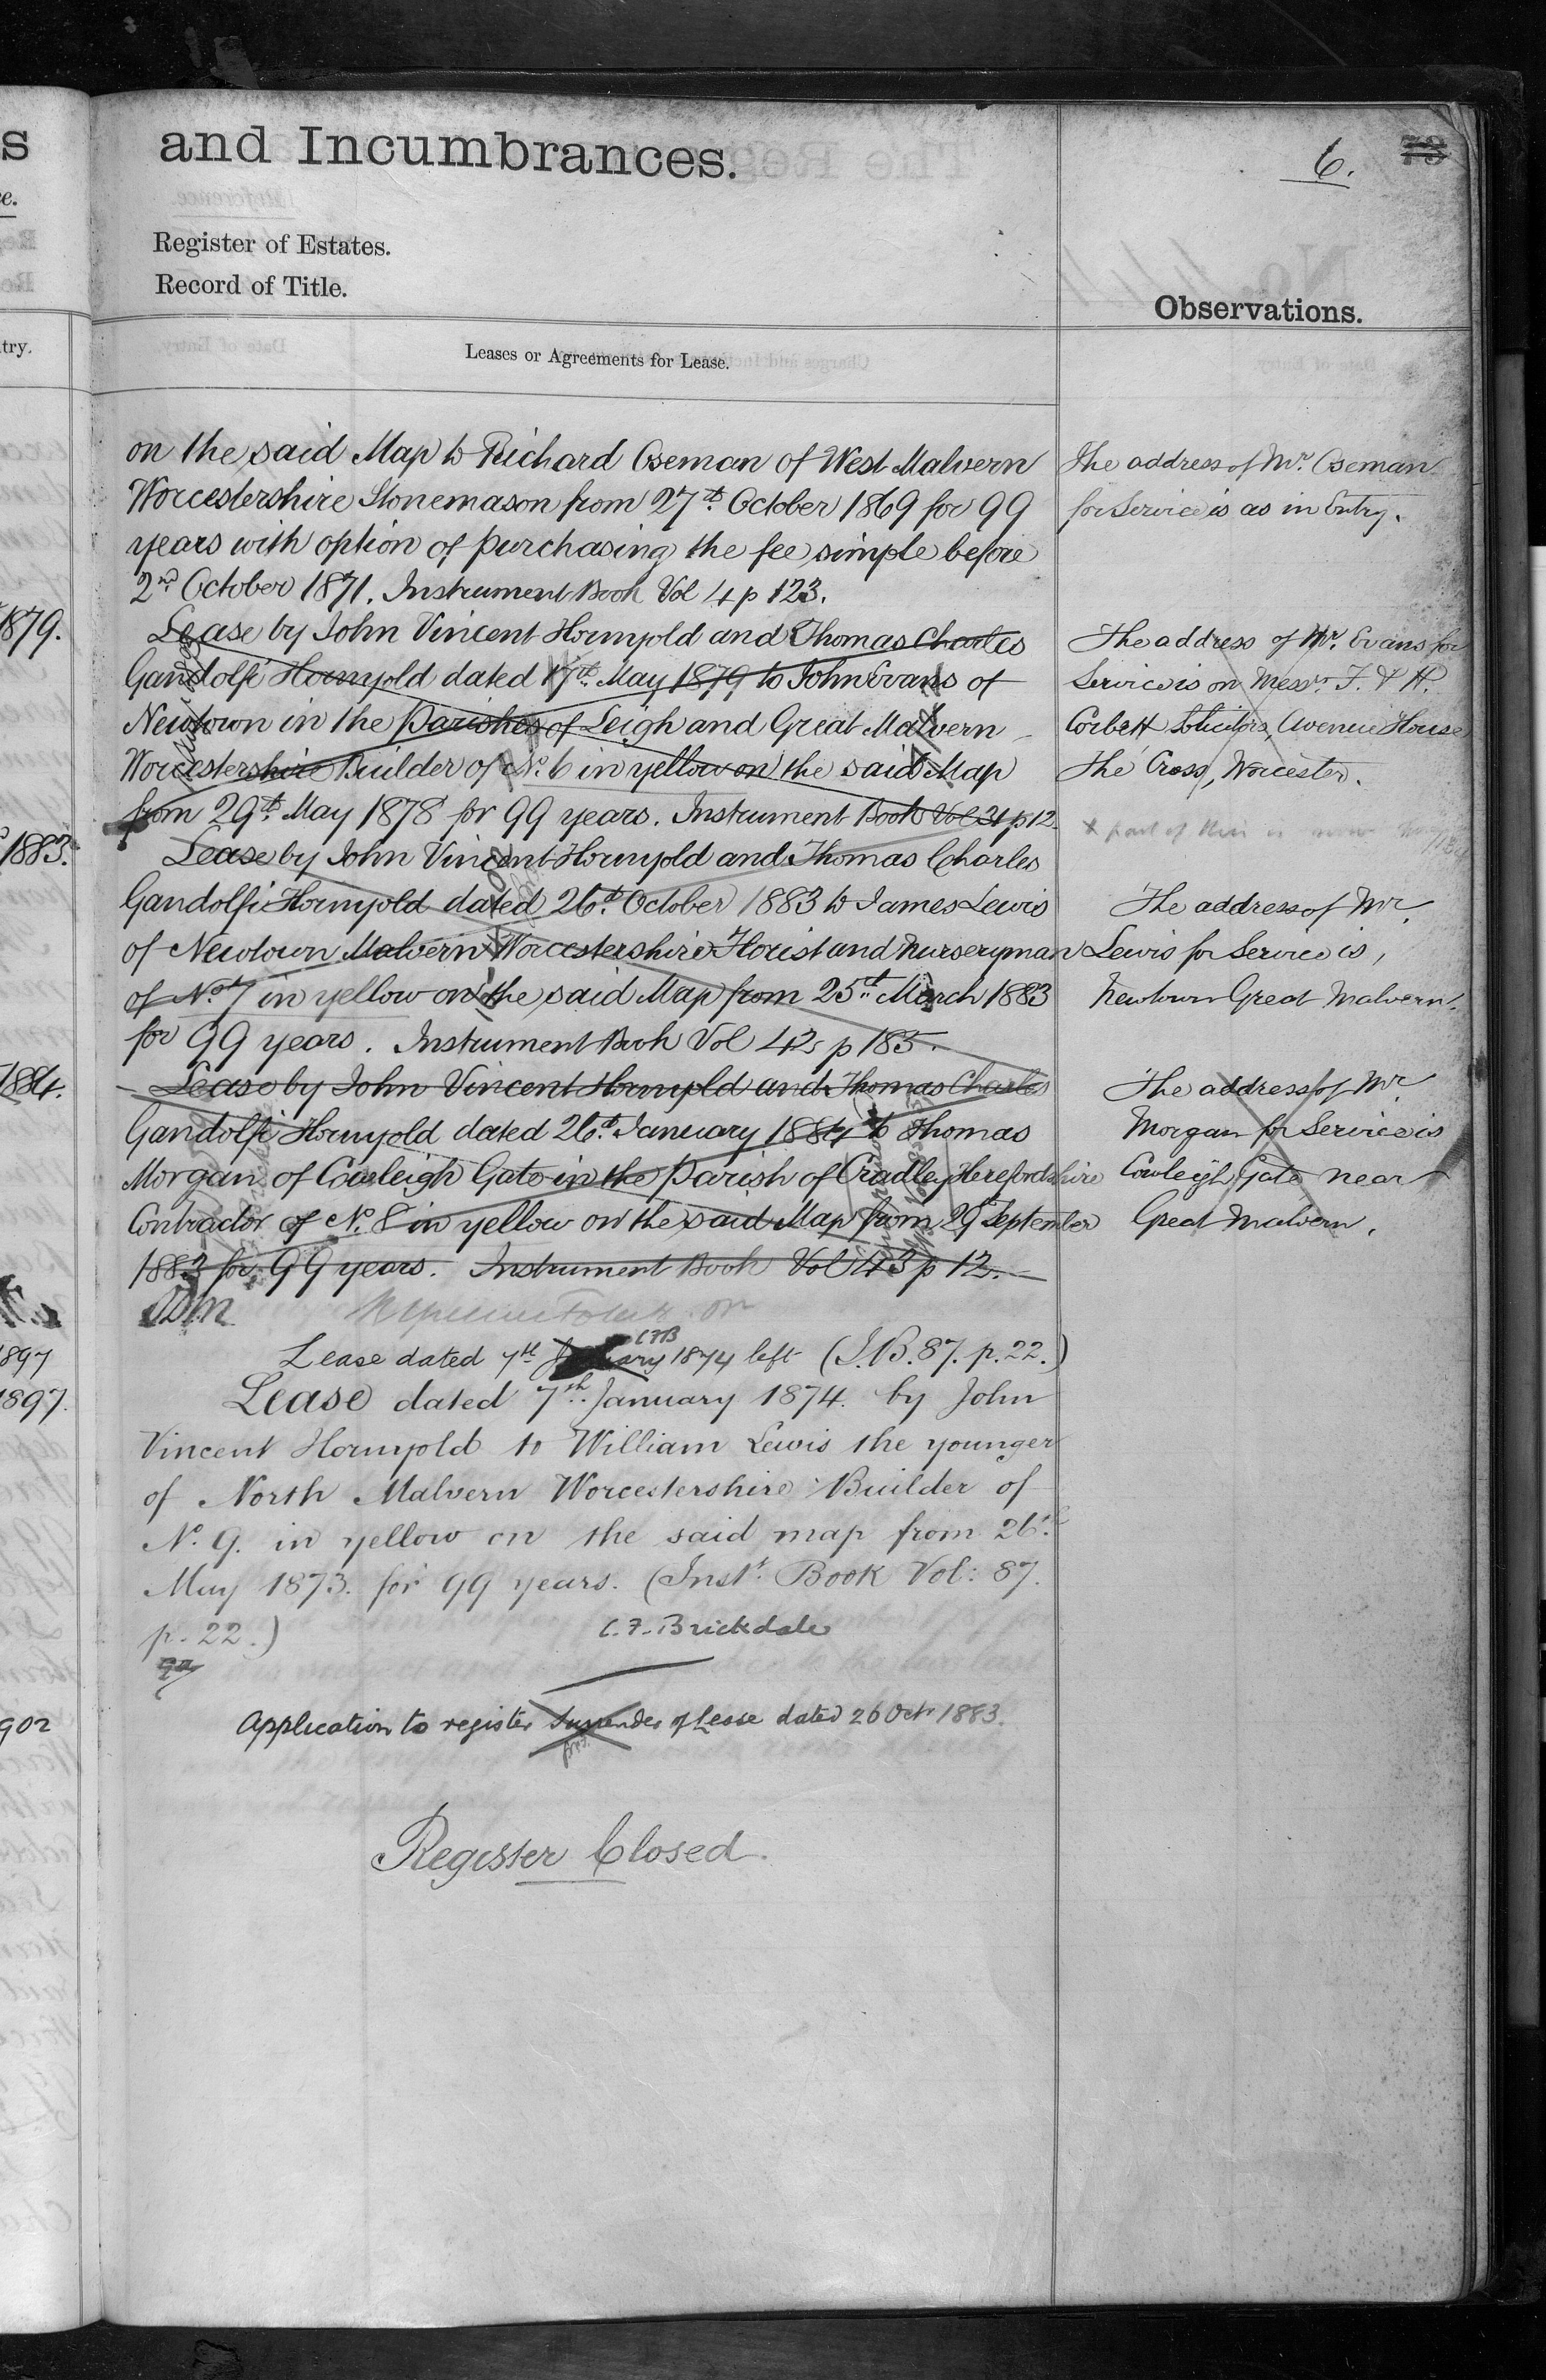 and Incumbrances.
6.
73
Register of Estates.
Record of Title.
Observations.
Leases or Agreements for Lease.
on the said Map to Richard Oseman of West Malvern
Worcestershire Stonemason from 27th October 1869 for 99
years with option of purchasing the fee simple before
2nd October 1871. Instrument Book Vol 4 p 123.
The address of Mr. Oseman
for Service is as in Entry.
1879.
Lease by John Vincent Hornyold and Thomas Charles
Gandolfi Hornyold dated 17th May 1879 to John Evans of
Newtown in the Parishes of Leigh and Great Malvern
Worcestershire Builder of No. 6 in yellow on the said Map
from 29th May 1878 for 99 years. Instrument Book Vol 31 p 12.
The address of Mr. Evans for
Service is on Messrs. F. & H.
Corbett Solicitors, Avenue House
The Cross, Worcester.
x part of this is now
1883.
Lease by John Vincent Hornyold and Thomas Charles
Gandolfi Hornyold dated 26th October 1883 to James Lewis
of Newtown Malvern Worcestershire Florist and Nurseryman
of No. 7 in yellow on the said Map from 25th March 1883
for 99 years. Instrument Book Vol 42 p 185.
The address of Mr.
Lewis for Service is,
Newtown Great Malvern.
1884.
Lease by John Vincent Hornyold and Thomas Charles
Gandolfi Hornyold dated 26th January 1884 to Thomas
Morgan of Cowleigh Gate in the Parish of Cradley Herefordshire
Contractor of No. 8 in yellow on the said Map from 29 September
1883 for 99 years. Instrument Book Vol 43 p 12.
The address of Mr.
Morgan for Service is
Cowleigh Gate near
Great Malvern.
1897
CFB
Lease dated 7th January 1874 left (I.B. 87. p. 22.)
1897.
Lease dated 7th January 1874. by John
Vincent Hornyold to William Lewis the younger
of North Malvern Worcestershire Builder of
No. 9. in yellow on the said map from 26th
May 1873. for 99 years. (Inst. Book Vol: 87.
p. 22.)
C. F. Brickdale
902
Application to register Surrender of Lease dated 26 Octr 1883.
Register Closed.